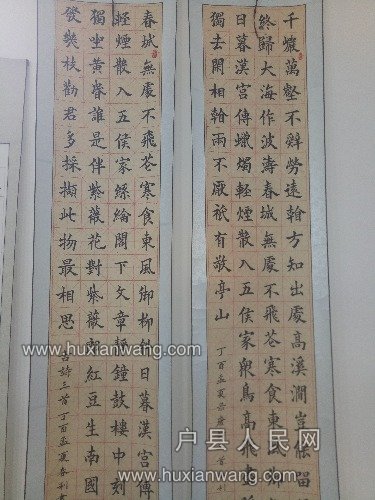 千巖萬壑不辭勞遠看方知出處高溪澗豈能留
終歸大海作波濤春城無處不飛花寒食東風
日暮漢宮傳蠟燭輕煙散入五侯家衆鳥高飛
獨去閒相看兩不厭祗有敬亭山 丁酉孟夏
春城無處不飛花寒食東風御柳斜日暮漢宮傳
輕煙散入五侯家絲綸閣下文章靜鐘鼓樓中刻
獨坐黃昏誰是伴紫薇花對紫薇郎紅豆生南國
發幾枝勸君多採擷此物最相思 古詩三首丁酉孟夏春利書
www.huxianwang.com
户县人民网
www.huxianwang.com
户县人民网
www.huxianwang.com